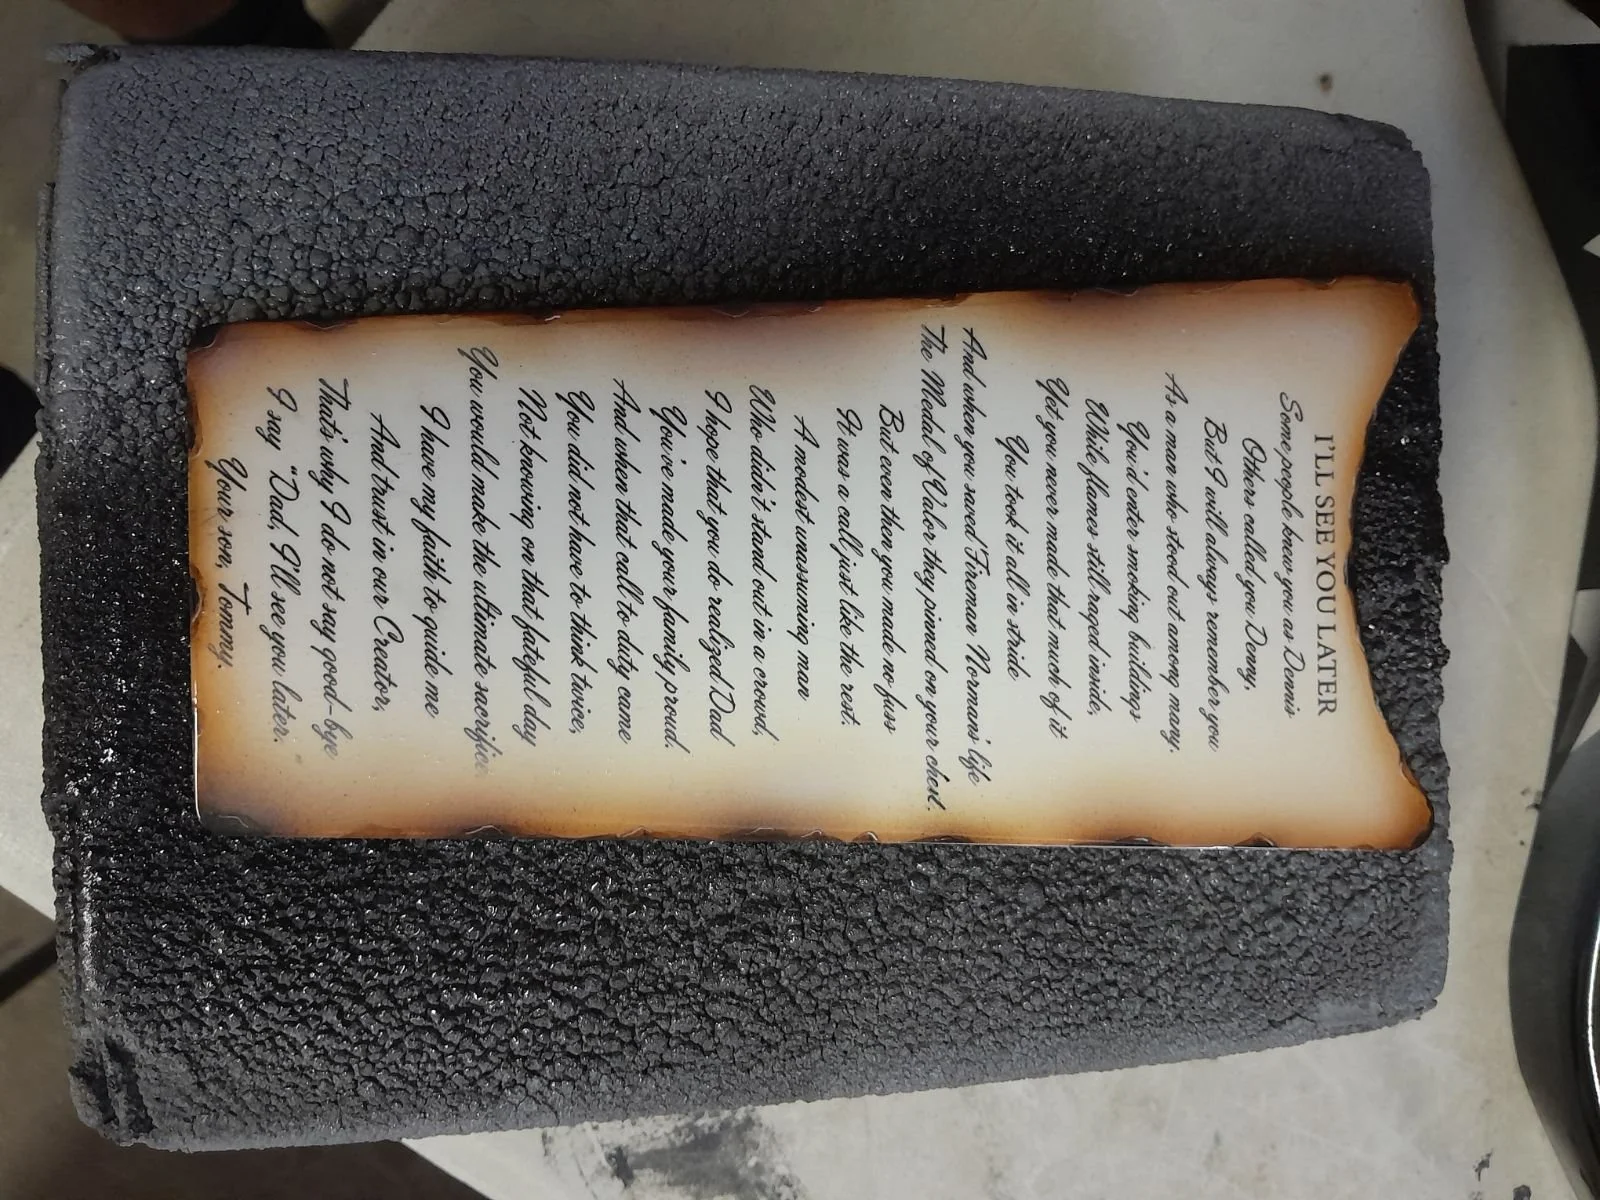 I'LL SEE YOU LATER
Some people knew you as Dennis
Others called you Denny,
But I will always remember you
As a man who stood out among many.
You'd enter smoking buildings
While flames still raged inside,
Yet you never made that much of it
You took it all in stride
And when you saved Fireman Norman's life
The Medal of Valor they pinned on your chest.
But even then you made no fuss
It was a call just like the rest.
A modest unassuming man
Who didn't stand out in a crowd,
I hope that you do realized Dad
You've made your family proud.
And when that call to duty came
You did not have to think twice,
Not knowing on that fateful day
You would make the ultimate sacrifice.
I have my faith to guide me
And trust in our Creator,
That's why I do not say good-bye
I say "Dad, I'll see you later.
Your son, Tommy.